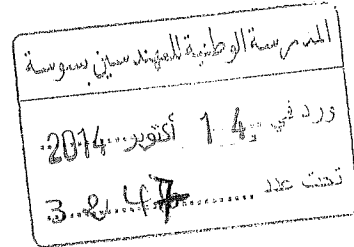 المدرسة الوطنية للمهندسين بسوسة
ورد في 14 أكتوبر 2014
تحت عدد 3247